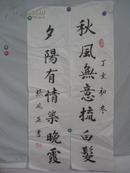 秋風無意梳白髮
丁亥初冬
夕陽有情染晚霞